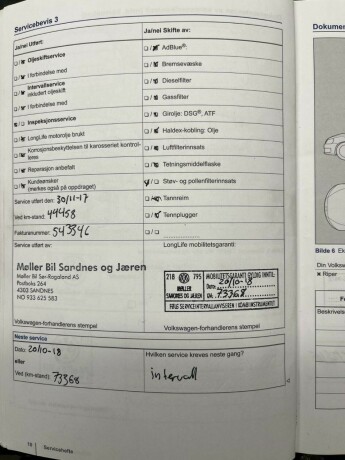 Servicebevis 3
Ja/nei Utført:
Ja/nei Skifte av:
Oljeskiftservice
AdBlue®:
I forbindelse med
Bremsevæske
Intervallservice
inkludert oljeskift
Dieselfilter
I forbindelse med
Gassfilter
Inspeksjonsservice
Girolje: DSG®, ATF
LongLife motorolje brukt
Haldex-kobling: Olje
Korrosjonsbeskyttelsen til karosseriet kontrol-
leres
Luftfilterinnsats
Reparasjon anbefalt
Tetningsmiddelflaske
Kundeønsker
(merkes også på oppdraget)
Støv- og pollenfilterinnsats
Service utført den: 30/11-17
Tannreim
Ved km-stand: 44458
Tennplugger
Fakturanummer: 543346
Service utført av:
LongLife mobilitetsgaranti:
Møller Bil Sandnes og Jæren
Møller Bil Sør-Rogaland AS
Postboks 264
4302 SANDNES
NO 933 625 583
218 795
MØLLER
SANDNES OG JÆREN
MOBILITETSGARANTI GYLDIG INNTIL:
Dato: 20/10-18
KM: 73368
FØLG SERVICEINTERVALLANVISEREN I KOMBIINSTRUMENTET
Volkswagen-forhandlerens stempel
Volkswagen-forhandlerens stempel
Neste service
Dato: 20/10-18
Hvilken service kreves neste gang?
eller
Ved (km-stand): 73368
intervall
16 Servicehefte
Dokumen
Bilde 6 Ek
Din Volks
× Riper
Beskrivels